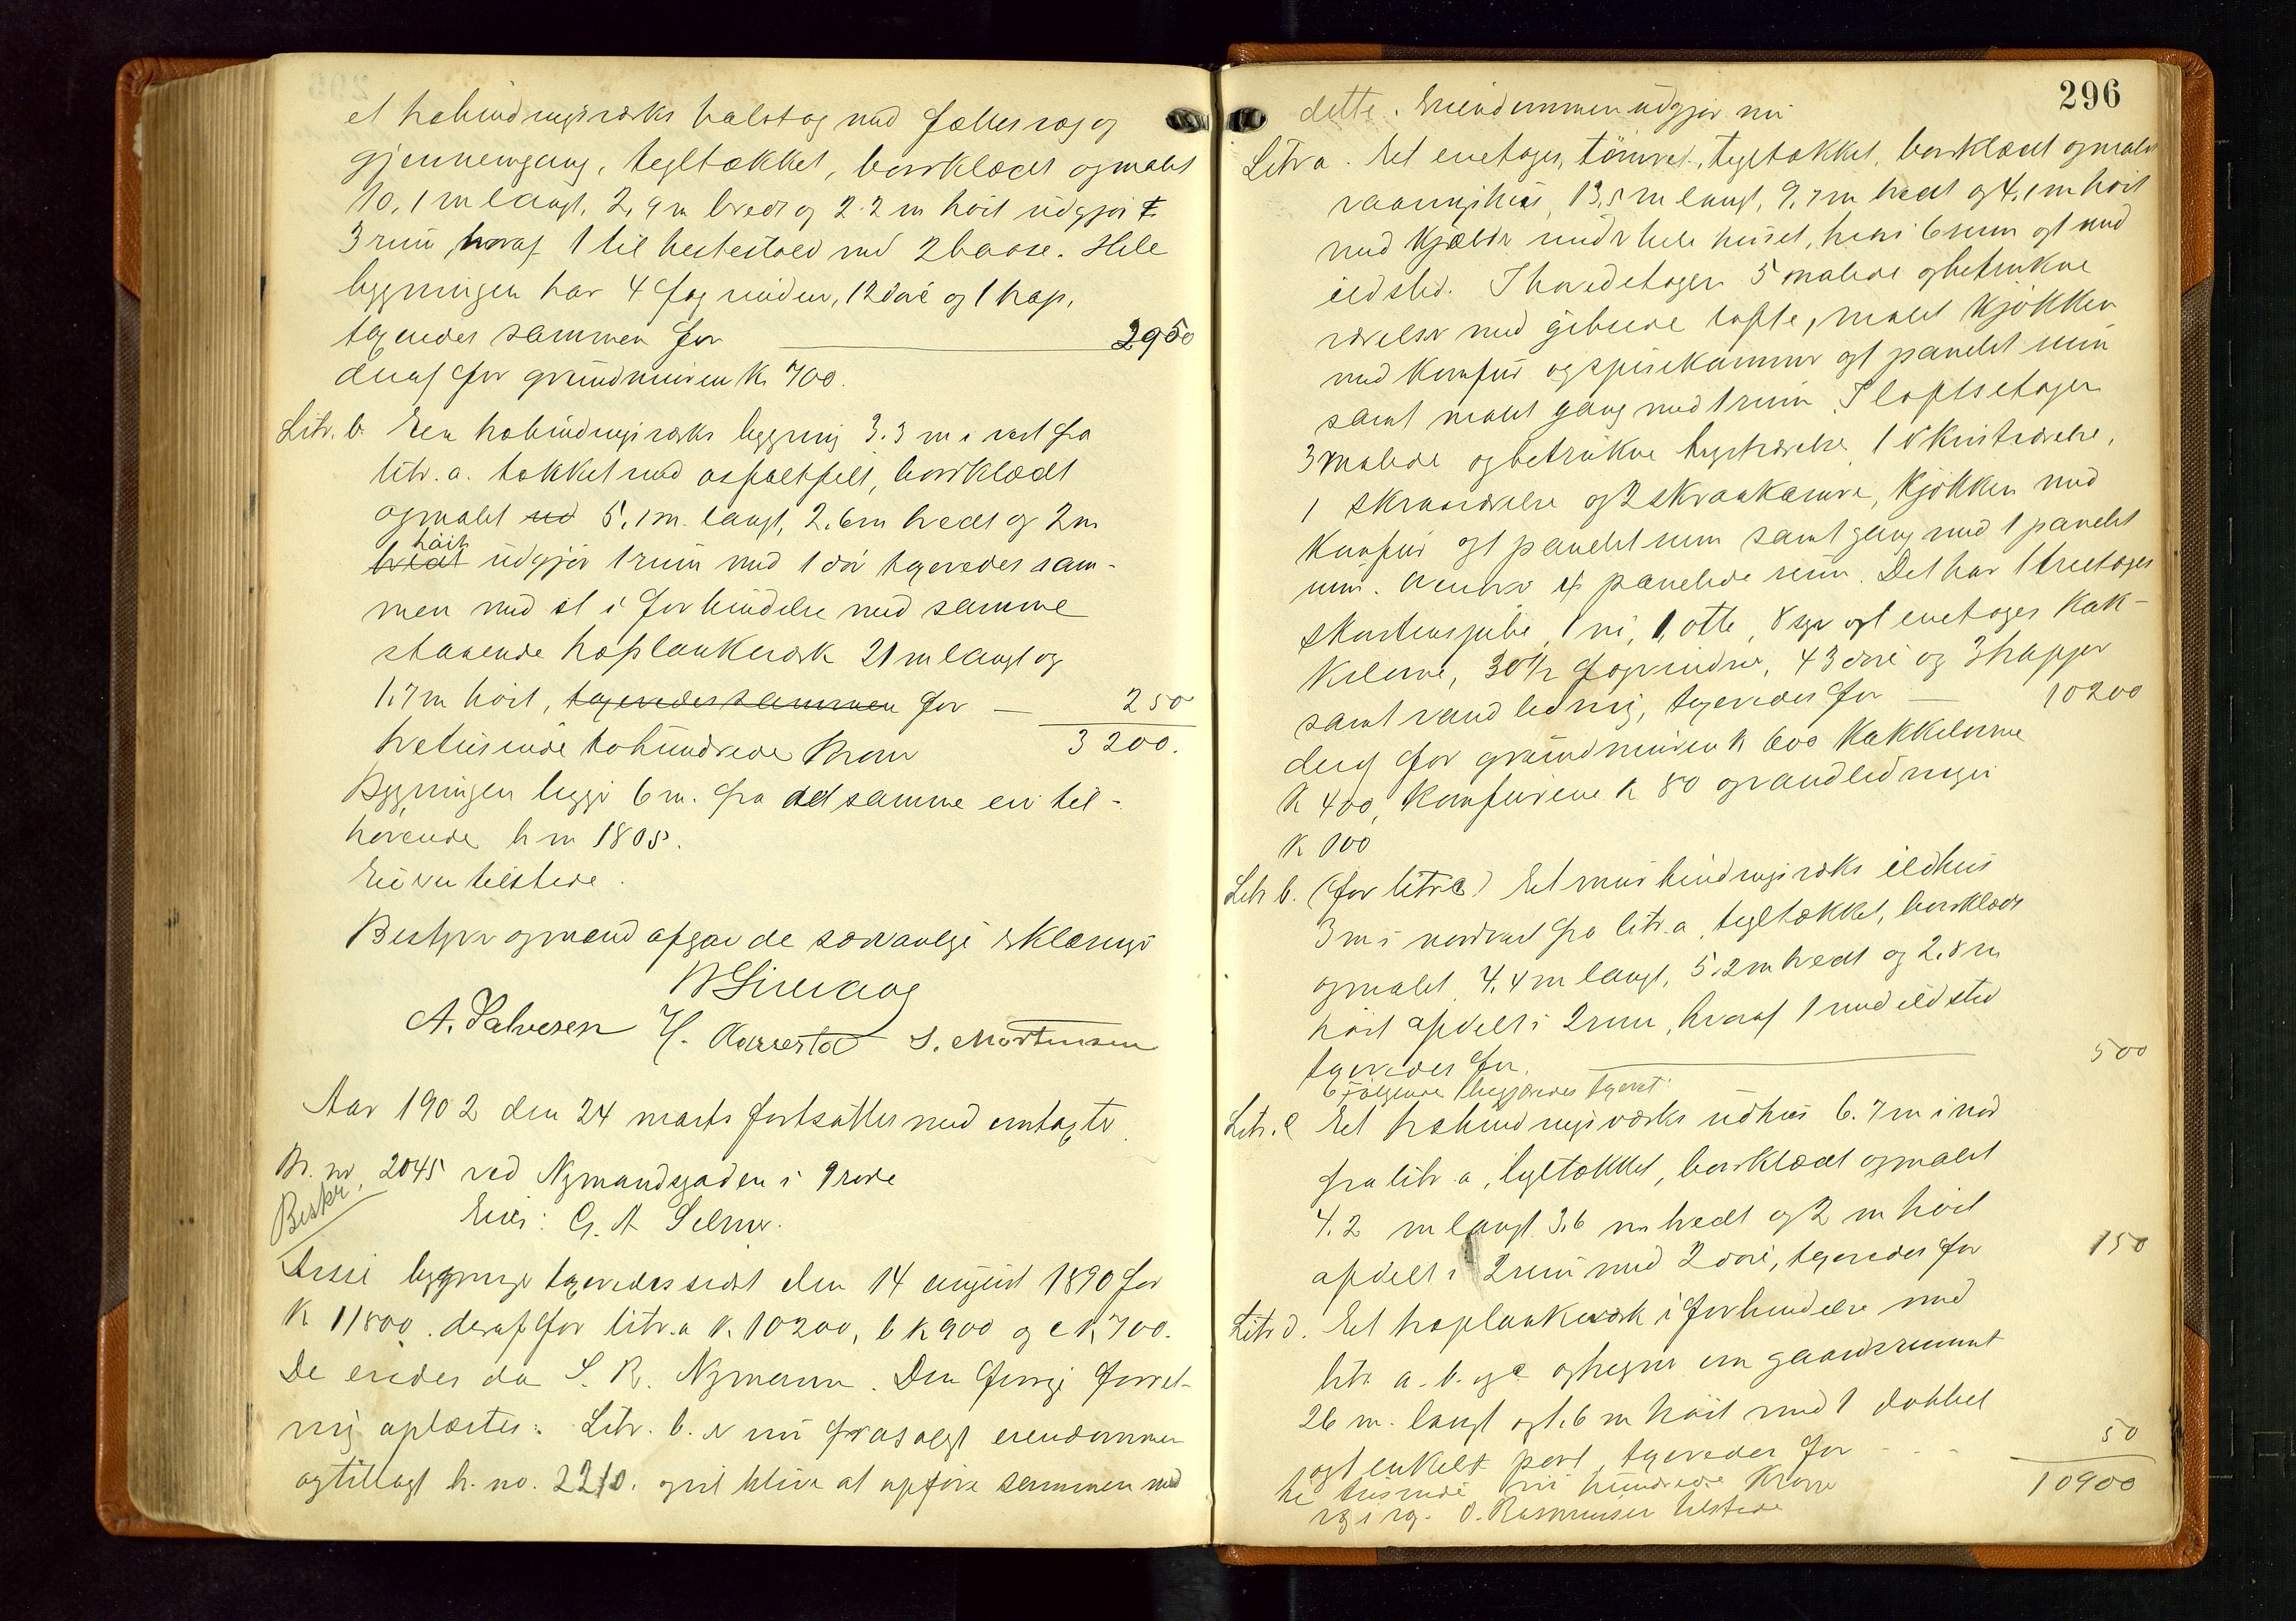 et trebindingsværks halvtag med fælles væg og
gjennemgang, tegltækket, bordklædt og malet
10,1 m langt, 2,9 m bredt og 2.2 m höit udgjör
3 rum, hvoraf 1 til hestestald med 2 baase. Hele
bygningen har 4 fag vinduer, 12 döre og 1 trap,
taxeredes sammen for 2950
deraf for grundmuren Kr 700.
Litr. b. Een trebindingsværks bygning 3.3 m i vest fra
litr. a. tækket med asfaltfilt, bordklædt
og malet ved 5,1 m. langt, 2,6 m bredt og 2 m
höit
bredt udgjör 1 rum med 1 dör taxeredes sam-
men med et i forbindelse med samme
staaende træplankeværk 21 m langt og
1,7 m höit, taxeredes sammen for — 250
tretusinde tohundrede Kroner 3200.
Bygningen ligger 6 m. fra det samme eier til-
hörende br no 1805.
Eieren tilstede.
Bestyrer og mænd afgav de sædvanlige erklæringer
A. Salvesen S. Mortensen
Aar 1902 den 24 marts fortsattes med omtaxter
Br. no. 2045 ved Nymandsgaden i 9 rode
Beskr.
Eier: G. A. Selmer.
Disse bygninger taxeredes sidst den 14 august 1890 for
K 11800. deraf for litr. a K. 10200, b K 900 og c K. 700.
De eiedes da S. R. Nymann. Den forrige forret-
ning oplæstes: Litr. b. er nu frasolgt eiendommen
og tillagt br. no. 2210. og vil blive at opföre sammen med
296
dette. Eiendommen udgjör nu
Litr a. Et enetages, tömret, tegltækket, bordklædt og malet
vaaningshus, 13,5 m langt, 9,7 m bredt og 4,1 m höit
med kjælder under hele huset, heri 6 rum og 1 med
ildsted. I hovedetagen 5 malede og betrukne
værelser med gibsede lofte, malet kjökken
med komfur og spisekammer og 1 panelet rum
samt malet gang med 1 rum. I loftsetagen
3 malede og betrukne kvistværelser, 1 kvistværelse,
1 skraaværelse og 2 skraakamre, kjökken med
komfur og 1 panelet rum samt gang med 1 panelet
rum. Ovenover 4 panelede rum. Det har 1 treetages
skorstenspibe, 1 ni, 1 otte, 8 syv og 1 enetages kak-
kelovne, 30 1/2 fag vinduer, 43 döre og 3 trapper
samt vandledning, taxeredes for — 10200
deraf for grundmuren K 600 kakkelovnene
K 400, komfurene K 80 og vandledningen
K 100
Litr b. (för litr c) Et mur bindingsværks ildhus
3 m i nordvest fra litr. a, tegltækket, bordklædt
og malet, 4,4 m langt, 5,2 m bredt og 2,8 m
höit afdelt i 2 rum, hvoraf 1 med ildsted
taxeredes for 500
Fölgende begjæredes taxeret:
Litr. c Et trebindingsværks udhus 6.7 m i nord
fra litr a, tegltækket, bordklædt og malet
4.2 m langt 3,6 m bredt og 2 m höit
afdelt i 2 rum med 2 döre, taxeredes for 150
Litr d. Et træplankeværk i forbindelse med
litr. a. b. og c og hegner om gaardsrummet
26 m. langt og 1,6 m höit med 1 dobbel
og 1 enkelt port, taxeredes for - - - 50
ti tusinde ni hundrede Kroner 10900
O. Rasmussen tilstede